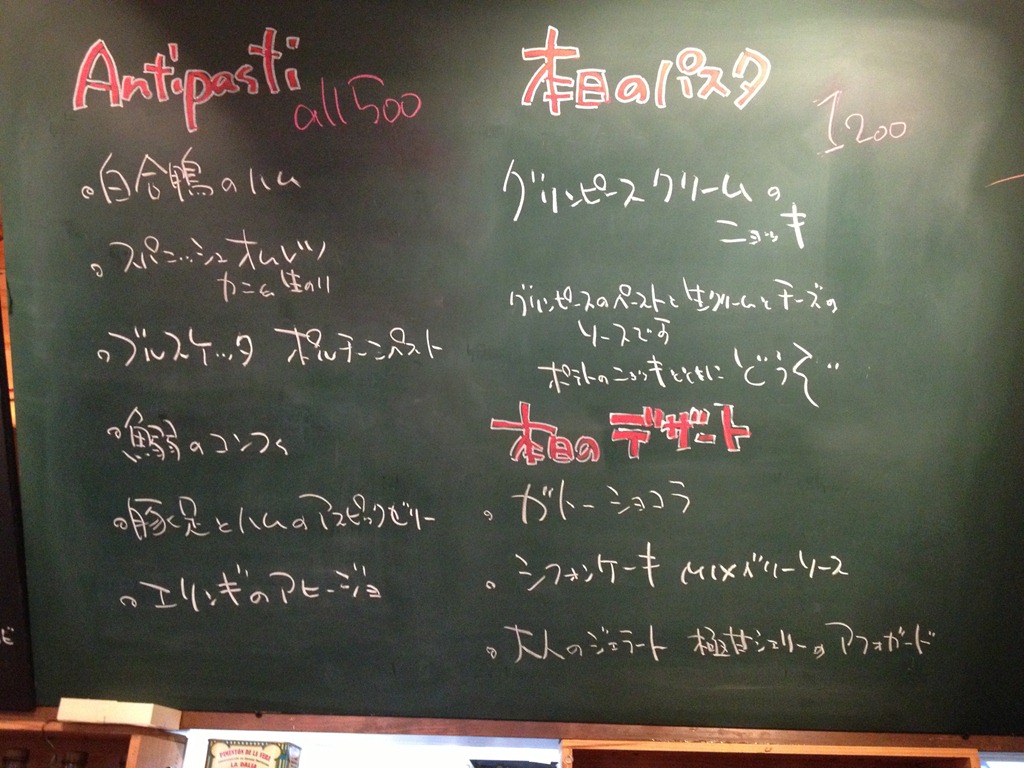 Antipasti
all 500
白合鴨のハム
スパニッシュオムレツ
カニと生のり
ブルスケッタ ポルチーニペスト
鰯のコンフィ
豚足とハムのアスピックゼリー
エリンギのアヒージョ
本日のパスタ
1200
グリンピースクリームの
ニョッキ
グリンピースのペーストと生クリームとチーズの
ソースです
ポテトのニョッキとともにどうぞ
本日のデザート
ガトーショコラ
シフォンケーキ MIXベリーソース
大人のジェラート 極甘シェリーのアフォガード
PIMENTÓN DE LA VERA
LA DALIA